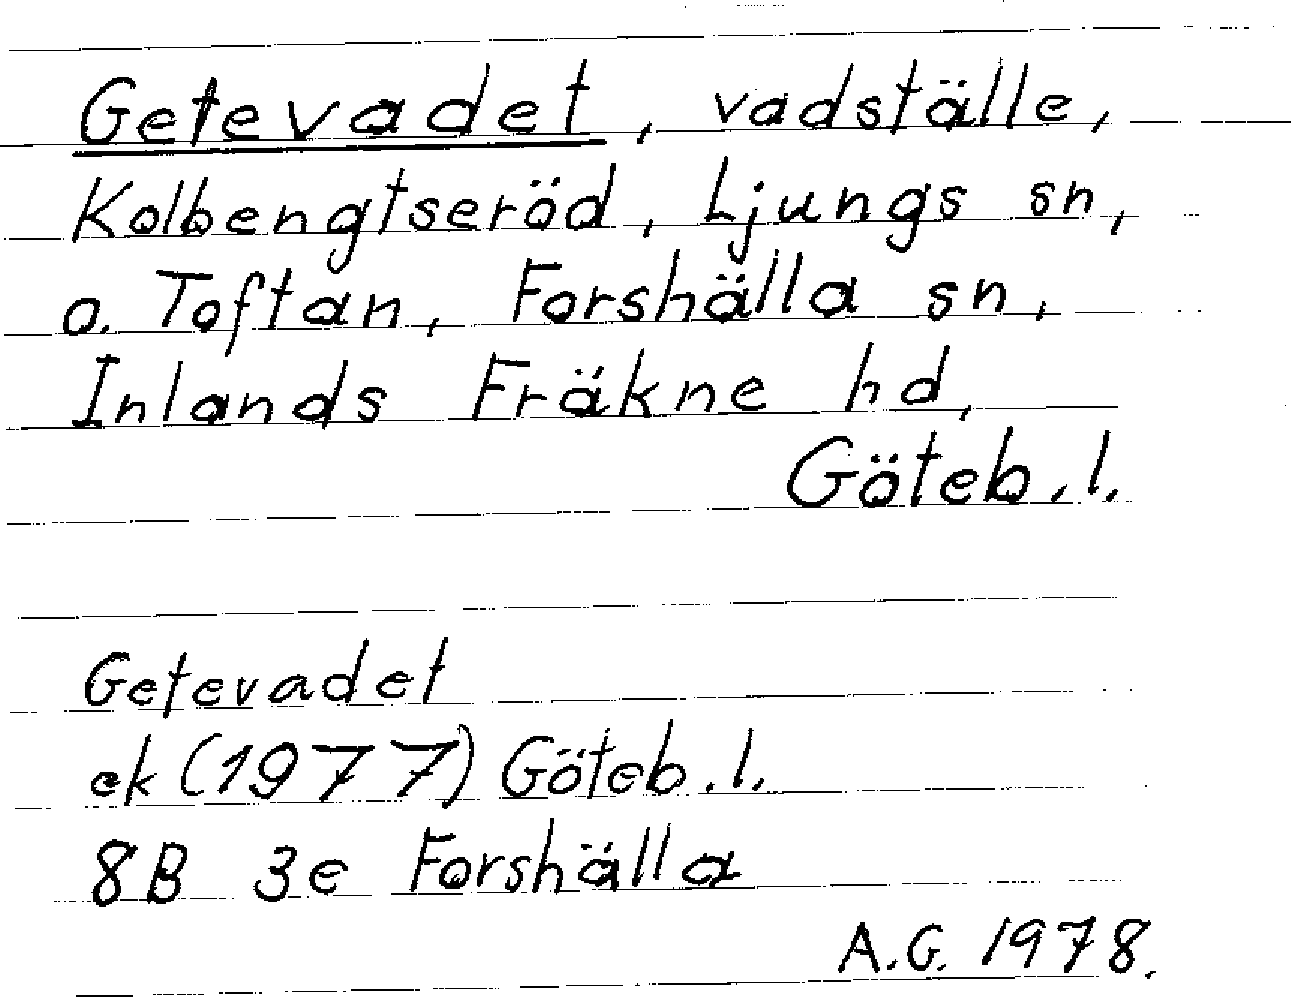 Getevadet, vadställe,
Kolbengtseröd, Ljungs sn,
o. Toftan, Forshälla sn,
Inlands Fräkne hd,
Göteb. l.
Getevadet
ek (1977) Göteb. l.
8B 3e Forshälla
A.G. 1978.